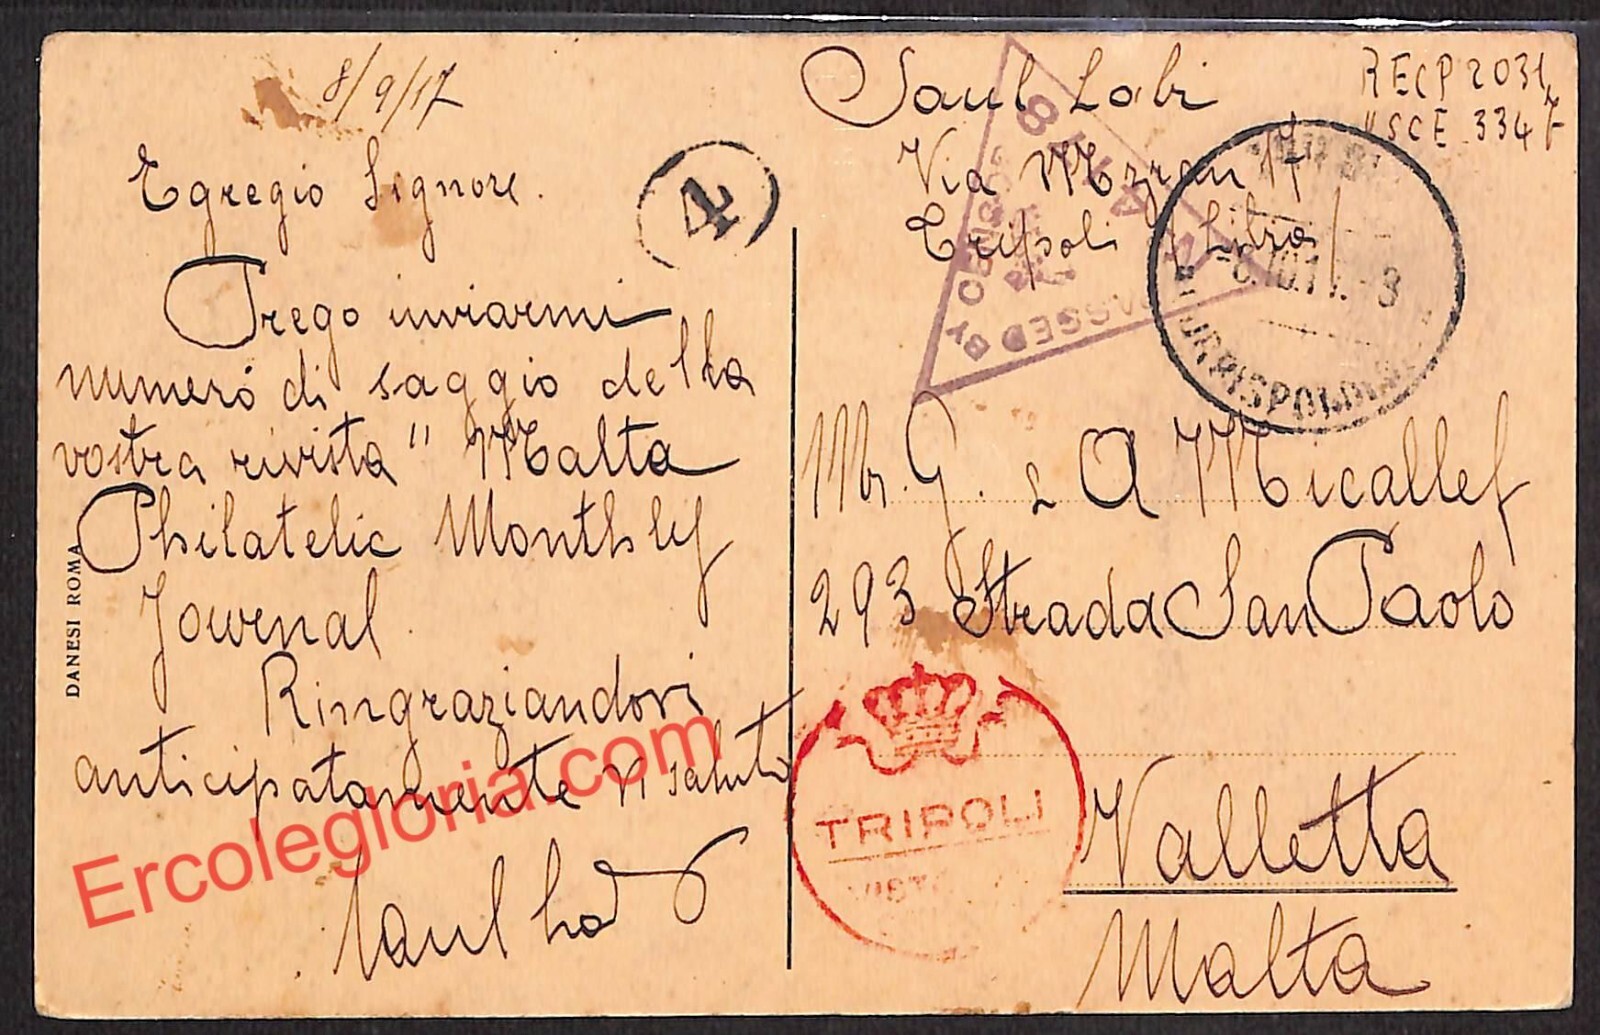 8/9/17
Egregio Signore.
Prego inviarmi
numero di saggio della
vostra rivista " Malta
Philatelic Monthly
Journal
Ringraziandovi
anticipatamente vi saluto
Saul
DANESI ROMA
4
Saul Labi
Via Mizran 17
Tripoli Libia
RECP 2031
USCE 3347
PASSED BY
Mr. G. & A Micallef
293 Strada San Paolo
Valletta
Malta
TRIPOLI
Ercolegloria.com